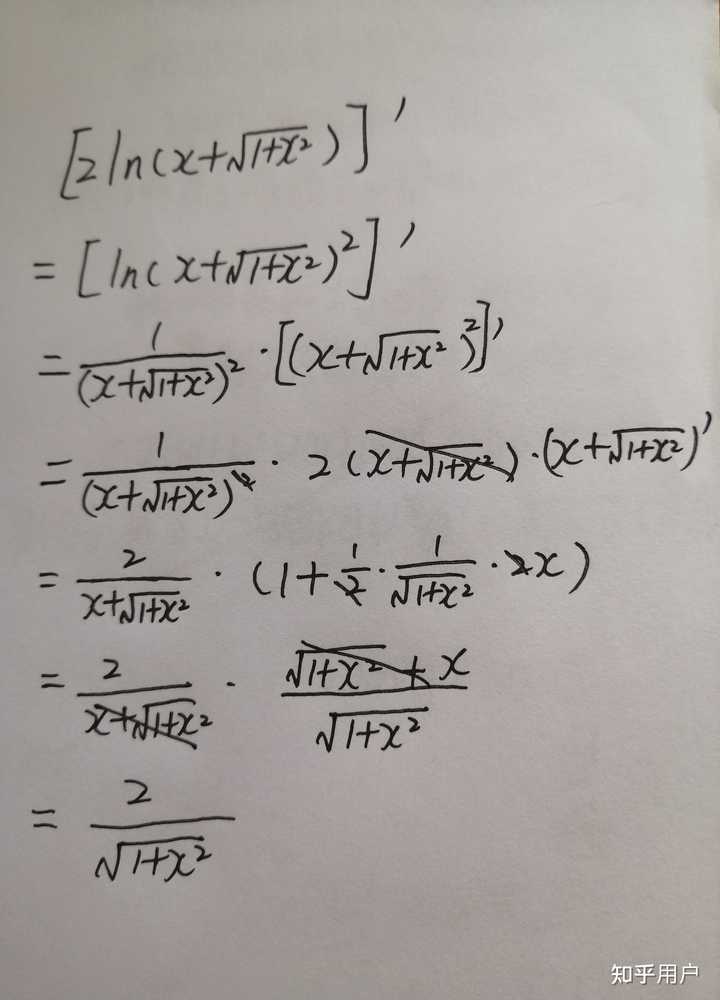 [2ln(x+√(1+x²))]'
= [ln(x+√(1+x²))²]'
= 1/(x+√(1+x²))² · [(x+√(1+x²))²]'
= 1/(x+√(1+x²))² · 2(x+√(1+x²))·(x+√(1+x²))'
= 2/(x+√(1+x²)) · (1+1/2·1/√(1+x²)·2x)
= 2/(x+√(1+x²)) · (√(1+x²)+x)/√(1+x²)
= 2/√(1+x²)
知乎用户